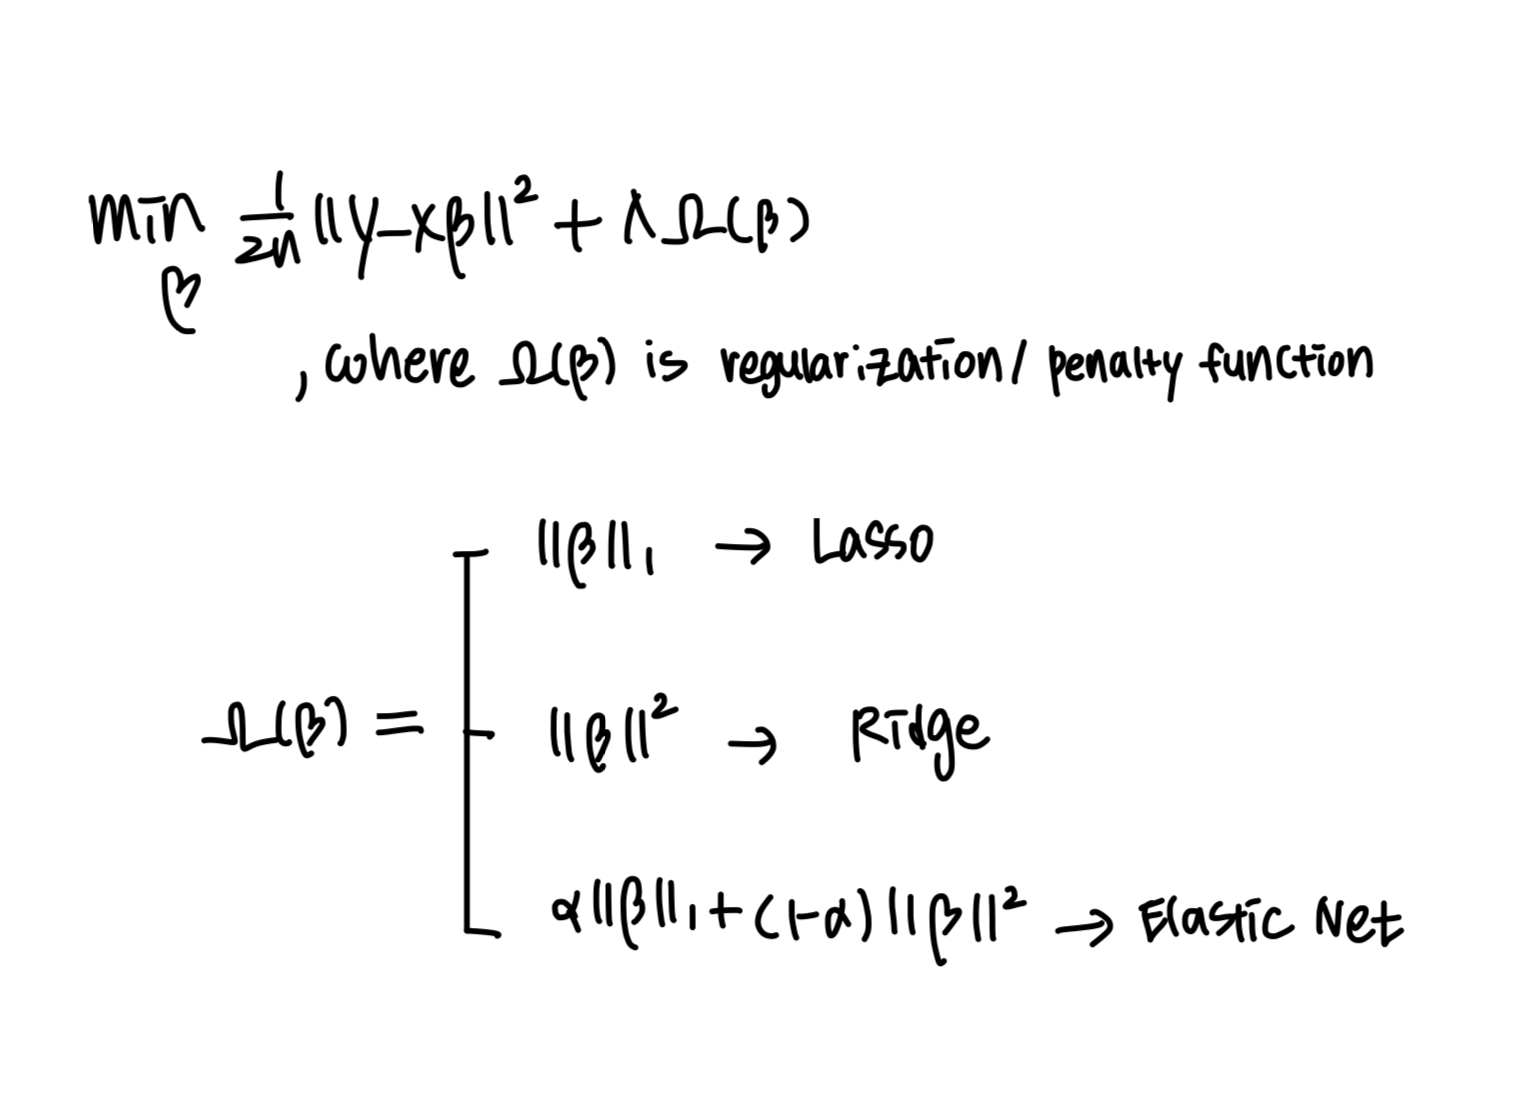 min 1/2n ||y-xβ||² + λΩ(β)
β
, where Ω(β) is regularization/ penalty function
||β||₁ → Lasso
Ω(β) = ||β||² → Ridge
α||β||₁ + (1-α)||β||² → Elastic Net